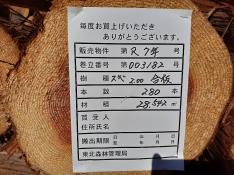 毎度お買上げいただき
ありがとうございます。
販売物件 第 R7年 号
巻立番号 第 003182 号
樹種 スギ 2.00 合板
本数 280 本
材積 28.592 m
買受人
住所氏名
搬出期限 自 年 月 日 至 年 月 日
東北森林管理局